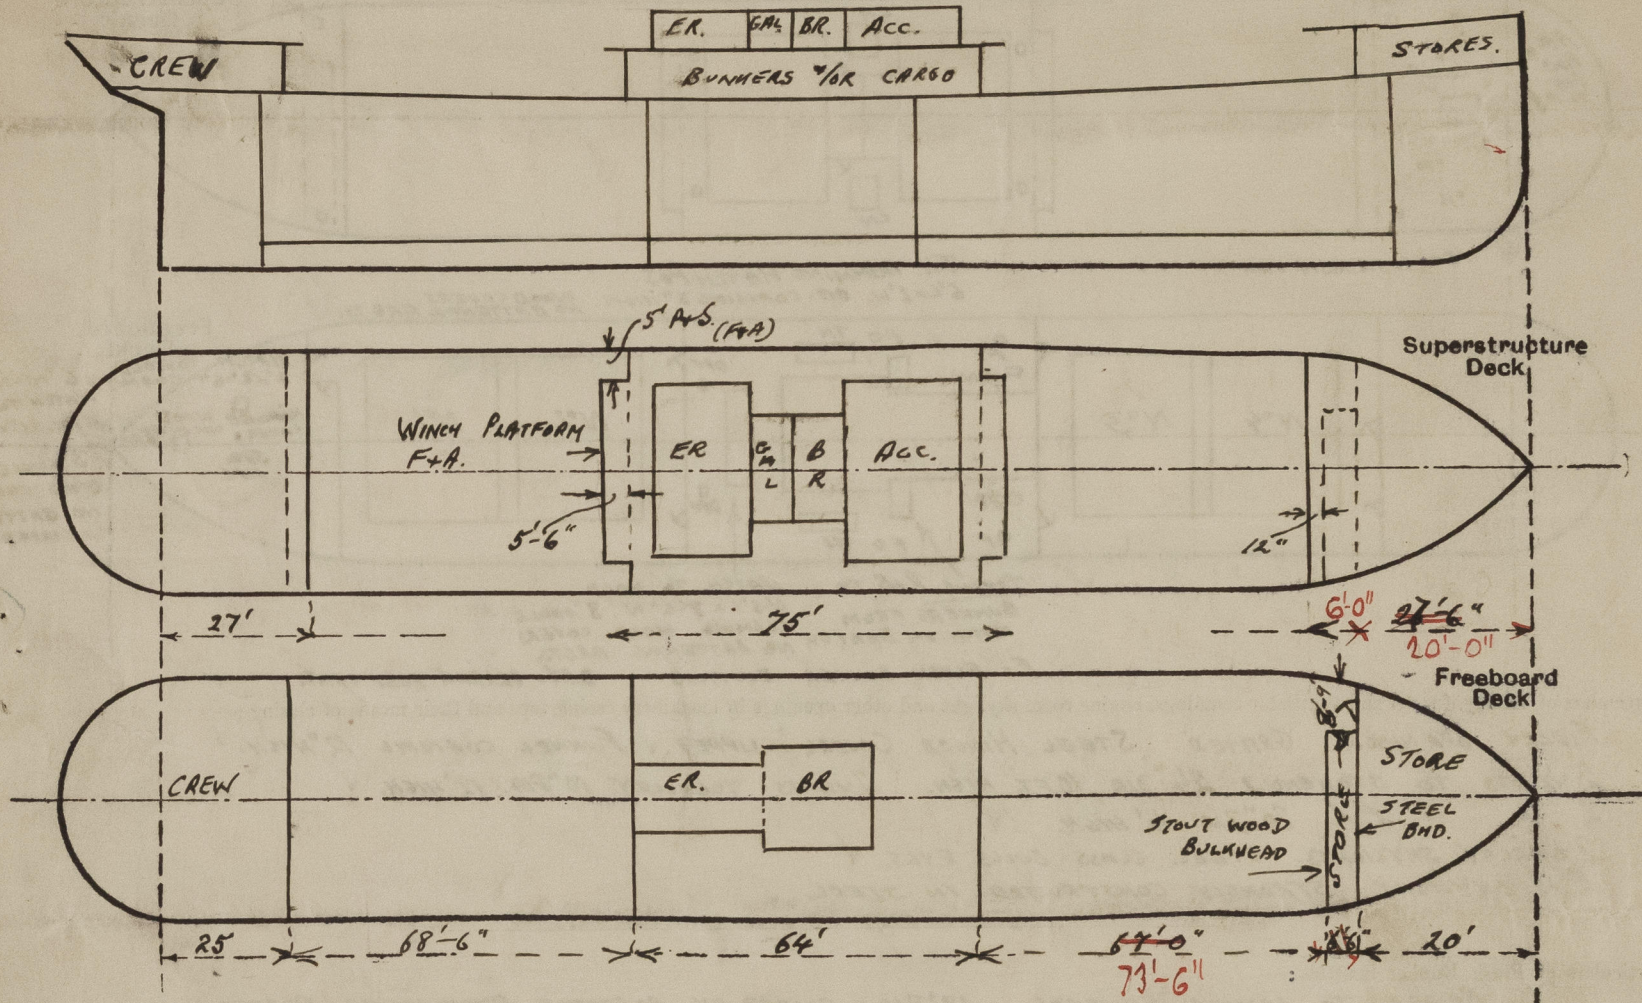 ER. GAL BR. ACC.
CREW
BUNKERS &/OR CARGO
STORES.
5' P+S. (F+A)
Superstructure
Deck
WINCH PLATFORM
F+A.
ER
GAL
BR
ACC.
5'-6"
12"
27'
75'
6'-0"
27'-6"
20'-0"
Freeboard
Deck
8'-9"
CREW
ER.
BR
STORE
STORE
STEEL
BHD.
STOUT WOOD
BULKHEAD
25
68'-6"
64'
67'-0"
20'
73'-6"